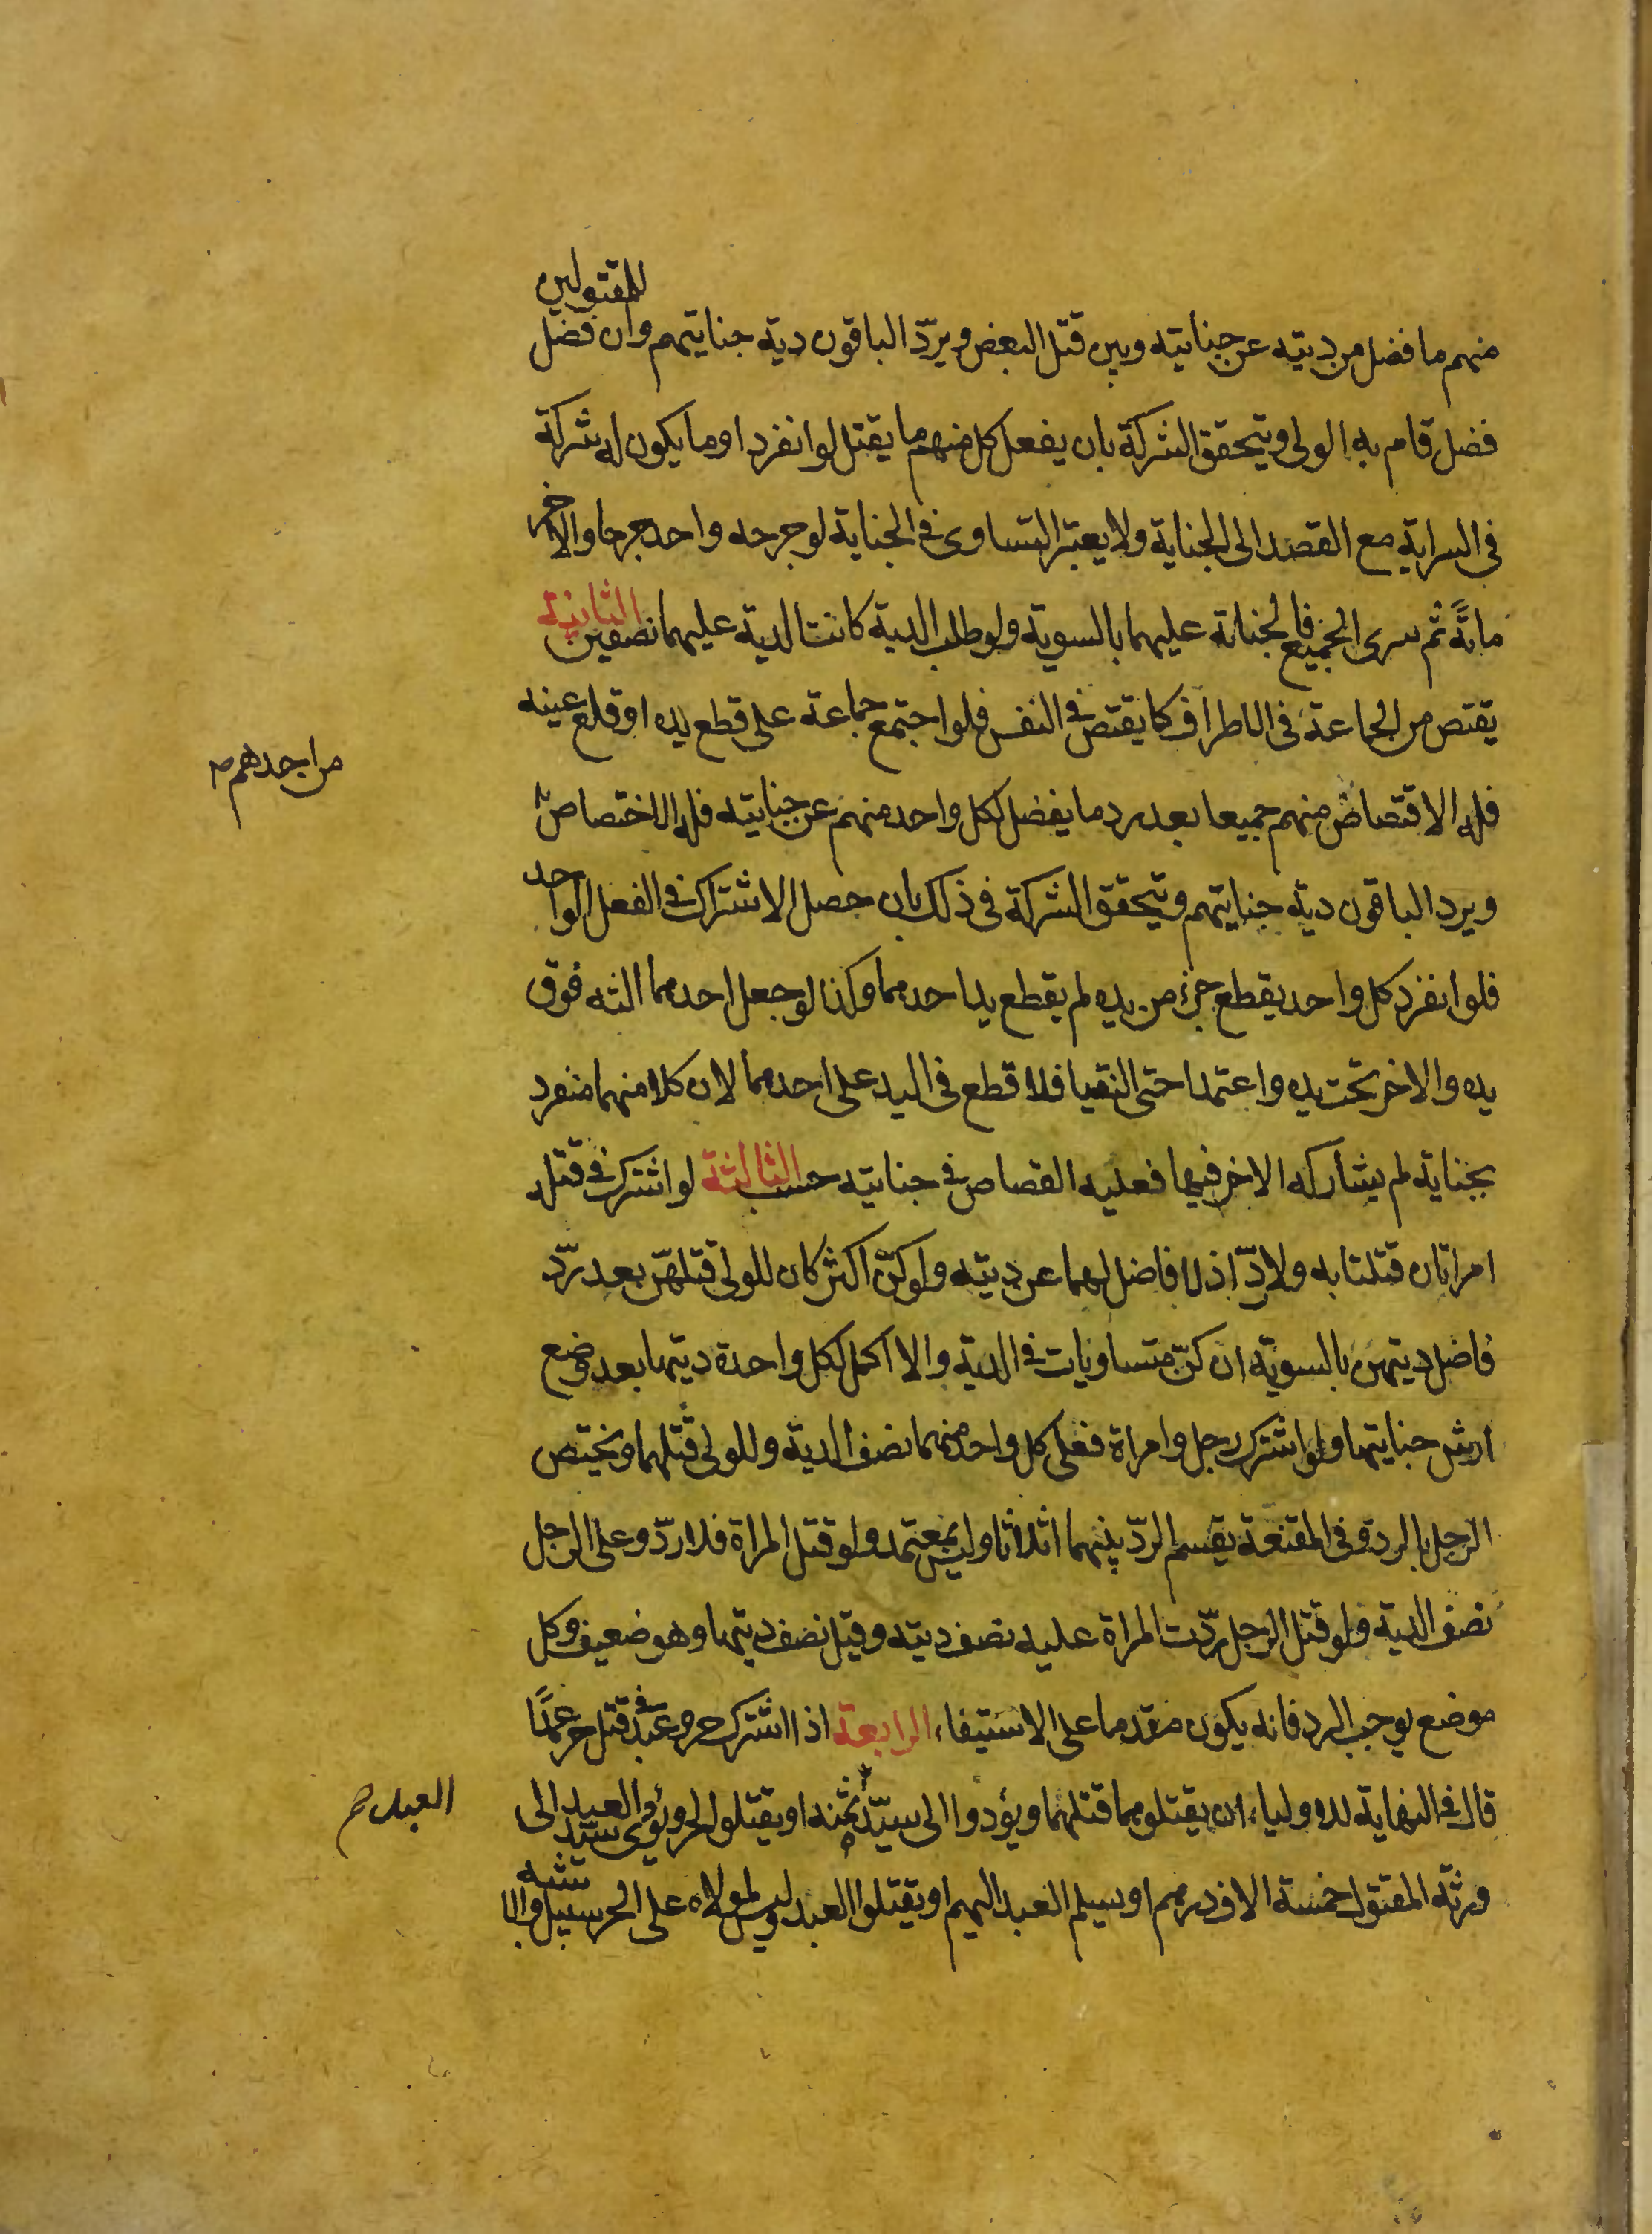 للمقتولين
منهم ما فضل من ديته عن جنايته وبين قتل البعض ويردّ الباقون دية جنايتهم وان فضل
فضل قام به الولى ويتحقق الشركة بان يفعل كل منهم ما يقتل لو انفرد او ما يكون له شركة
فى السراية مع القصد الى الجناية ولا يعتبر التساوى فى الجناية لو جرحه واحد جرحا والاخر
مائة ثم سرى الجميع فالجناية عليهما بالسوية ولو طلب الدية كانت الدية عليهما نصفين الثانية
يقتص من الجماعة فى الاطراف كما يقتص فى النفس فلو اجتمع جماعة على قطع يده او قلع عينه
فله الاقتصاص منهم جميعا بعد رد ما يفضل لكل واحد منهم عن جنايته فله الاختصاص
من احدهم
ويرد الباقون دية جنايتهم ويتحقق الشركة فى ذلك بان حصل الاشتراك فى الفعل الواحد
فلو انفرد كل واحد بقطع جزء من يده لم يقطع يد احدهما وكذا لو جعل احدهما الته فوق
يده والاخر تحت يده واعتمدا حتى التقيا فلا قطع فى اليد على احدهما لان كلا منهما منفرد
بجناية لم يشاركه الاخر فيها فعليه القصاص فى جنايته حسب الثالثة لو اشترك فى قتله
امراتان قتلتا به ولا ردّ اذ لا فاضل لهما عن ديته ولو كنّ اكثر كان للولى قتلهنّ بعد ردّ
فاضل ديتهن بالسوية ان كنّ متساويات فى الدية والا اكمل لكل واحدة ديتها بعد وضع
ارش جنايتها ولو اشترك رجل وامراة فعلى كل واحد منهما نصف الدية وللولى قتلهما ويختص
الرجل بالرد وفى المقنعة يقسم الردّ بينهما اثلاثا وليس بمعتمد ولو قتل المراة فلا ردّ وعلى الرجل
نصف الدية ولو قتل الرجل ردّت المراة عليه نصف ديته وقيل نصف ديتها وهو ضعيف وكل
موضع يوجب الرد فانه يكون مقدما على الاستيفاء الرابعة اذا اشترك حر وعبد فى قتل حر عمدًا
قال فى النهاية للاولياء ان يقتلوهما قتلهما ويؤدوا الى سيّده ثمنه او يقتلوا الحر ويؤدى سيّد العبد الى
العبد
ورثة المقتول خمسة الاف درهم او يسلم العبد اليهم او يقتلوا العبد وليس لمولاه على الحر سبيل